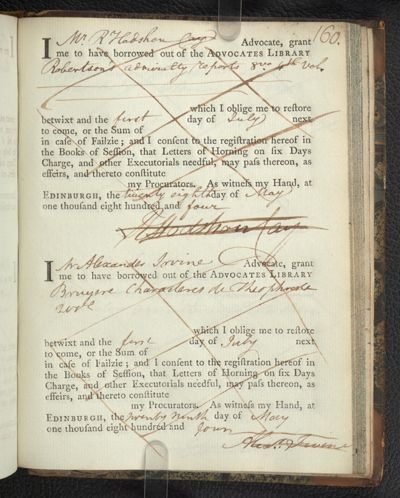 160.
I Mr R Hodshon Cay Advocate, grant
me to have borrowed out of the ADVOCATES LIBRARY
Robertsons admiralty reports 8vo 4th Vol.
which I oblige me to reſtore
betwixt and the first day of July next
to come, or the Sum of
in caſe of Failzie; and I conſent to the regiſtration hereof in
the Books of Seſſion, that Letters of Horning on ſix Days
Charge, and other Executorials needful, may paſs thereon, as
effeirs, and thereto conſtitute
my Procurators. As witneſs my Hand, at
EDINBURGH, the twenty eighth day of May
one thouſand eight hundred and four
R Hodshon Cay
I Mr Alexander Irvine Advocate, grant
me to have borrowed out of the ADVOCATES LIBRARY
Bruyere Characteres de Theophraste
which I oblige me to reſtore
betwixt and the first day of July next
to come, or the Sum of
in caſe of Failzie; and I conſent to the regiſtration hereof in
the Books of Seſſion, that Letters of Horning on ſix Days
Charge, and other Executorials needful, may paſs thereon, as
effeirs, and thereto conſtitute
my Procurators. As witneſs my Hand, at
EDINBURGH, the twenty ninth day of May
one thouſand eight hundred and four
Alexr. Irvine